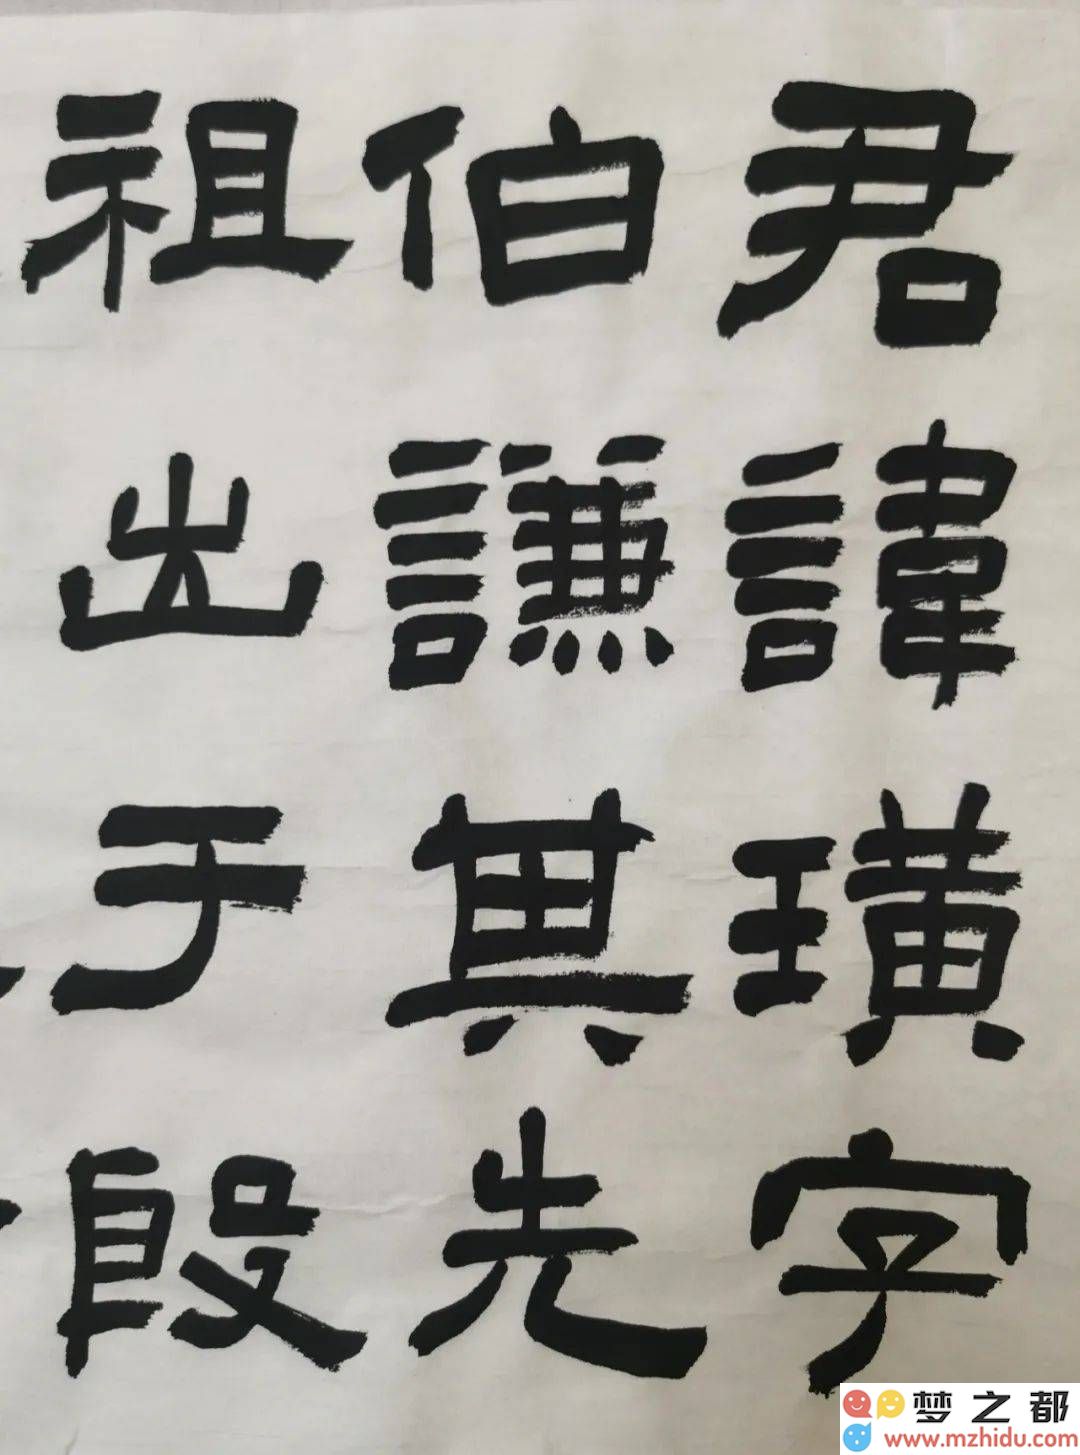 君諱璜字
伯謙其先
祖出于殷
梦之都
www.mzhidu.com